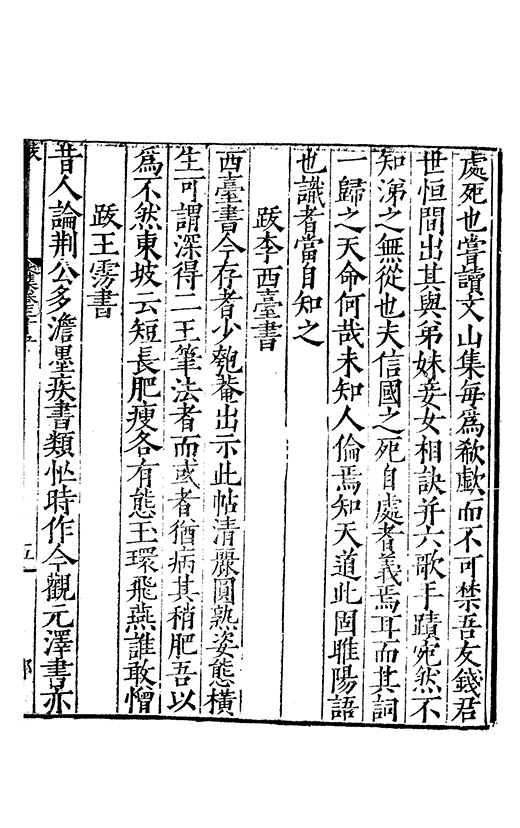 處死也嘗讀文山集每爲欷歔而不可禁吾友錢君
世恒間出其與弟妹妾女相訣并六歌手蹟宛然不
知涕之無從也夫信國之死自處者義焉耳而其詞
一歸之天命何哉未知人倫焉知天道此固睢陽語
也識者當自知之
跋李西臺書
西臺書今存者少匏菴出示此帖清嚴圓熟姿態橫
生可謂深得二王筆法者而或者猶病其稍肥吾以
爲不然東坡云短長肥瘦各有態玉環飛燕誰敢憎
跋王雱書
昔人論荆公多澹墨疾書類忙時作今觀元澤書亦
五